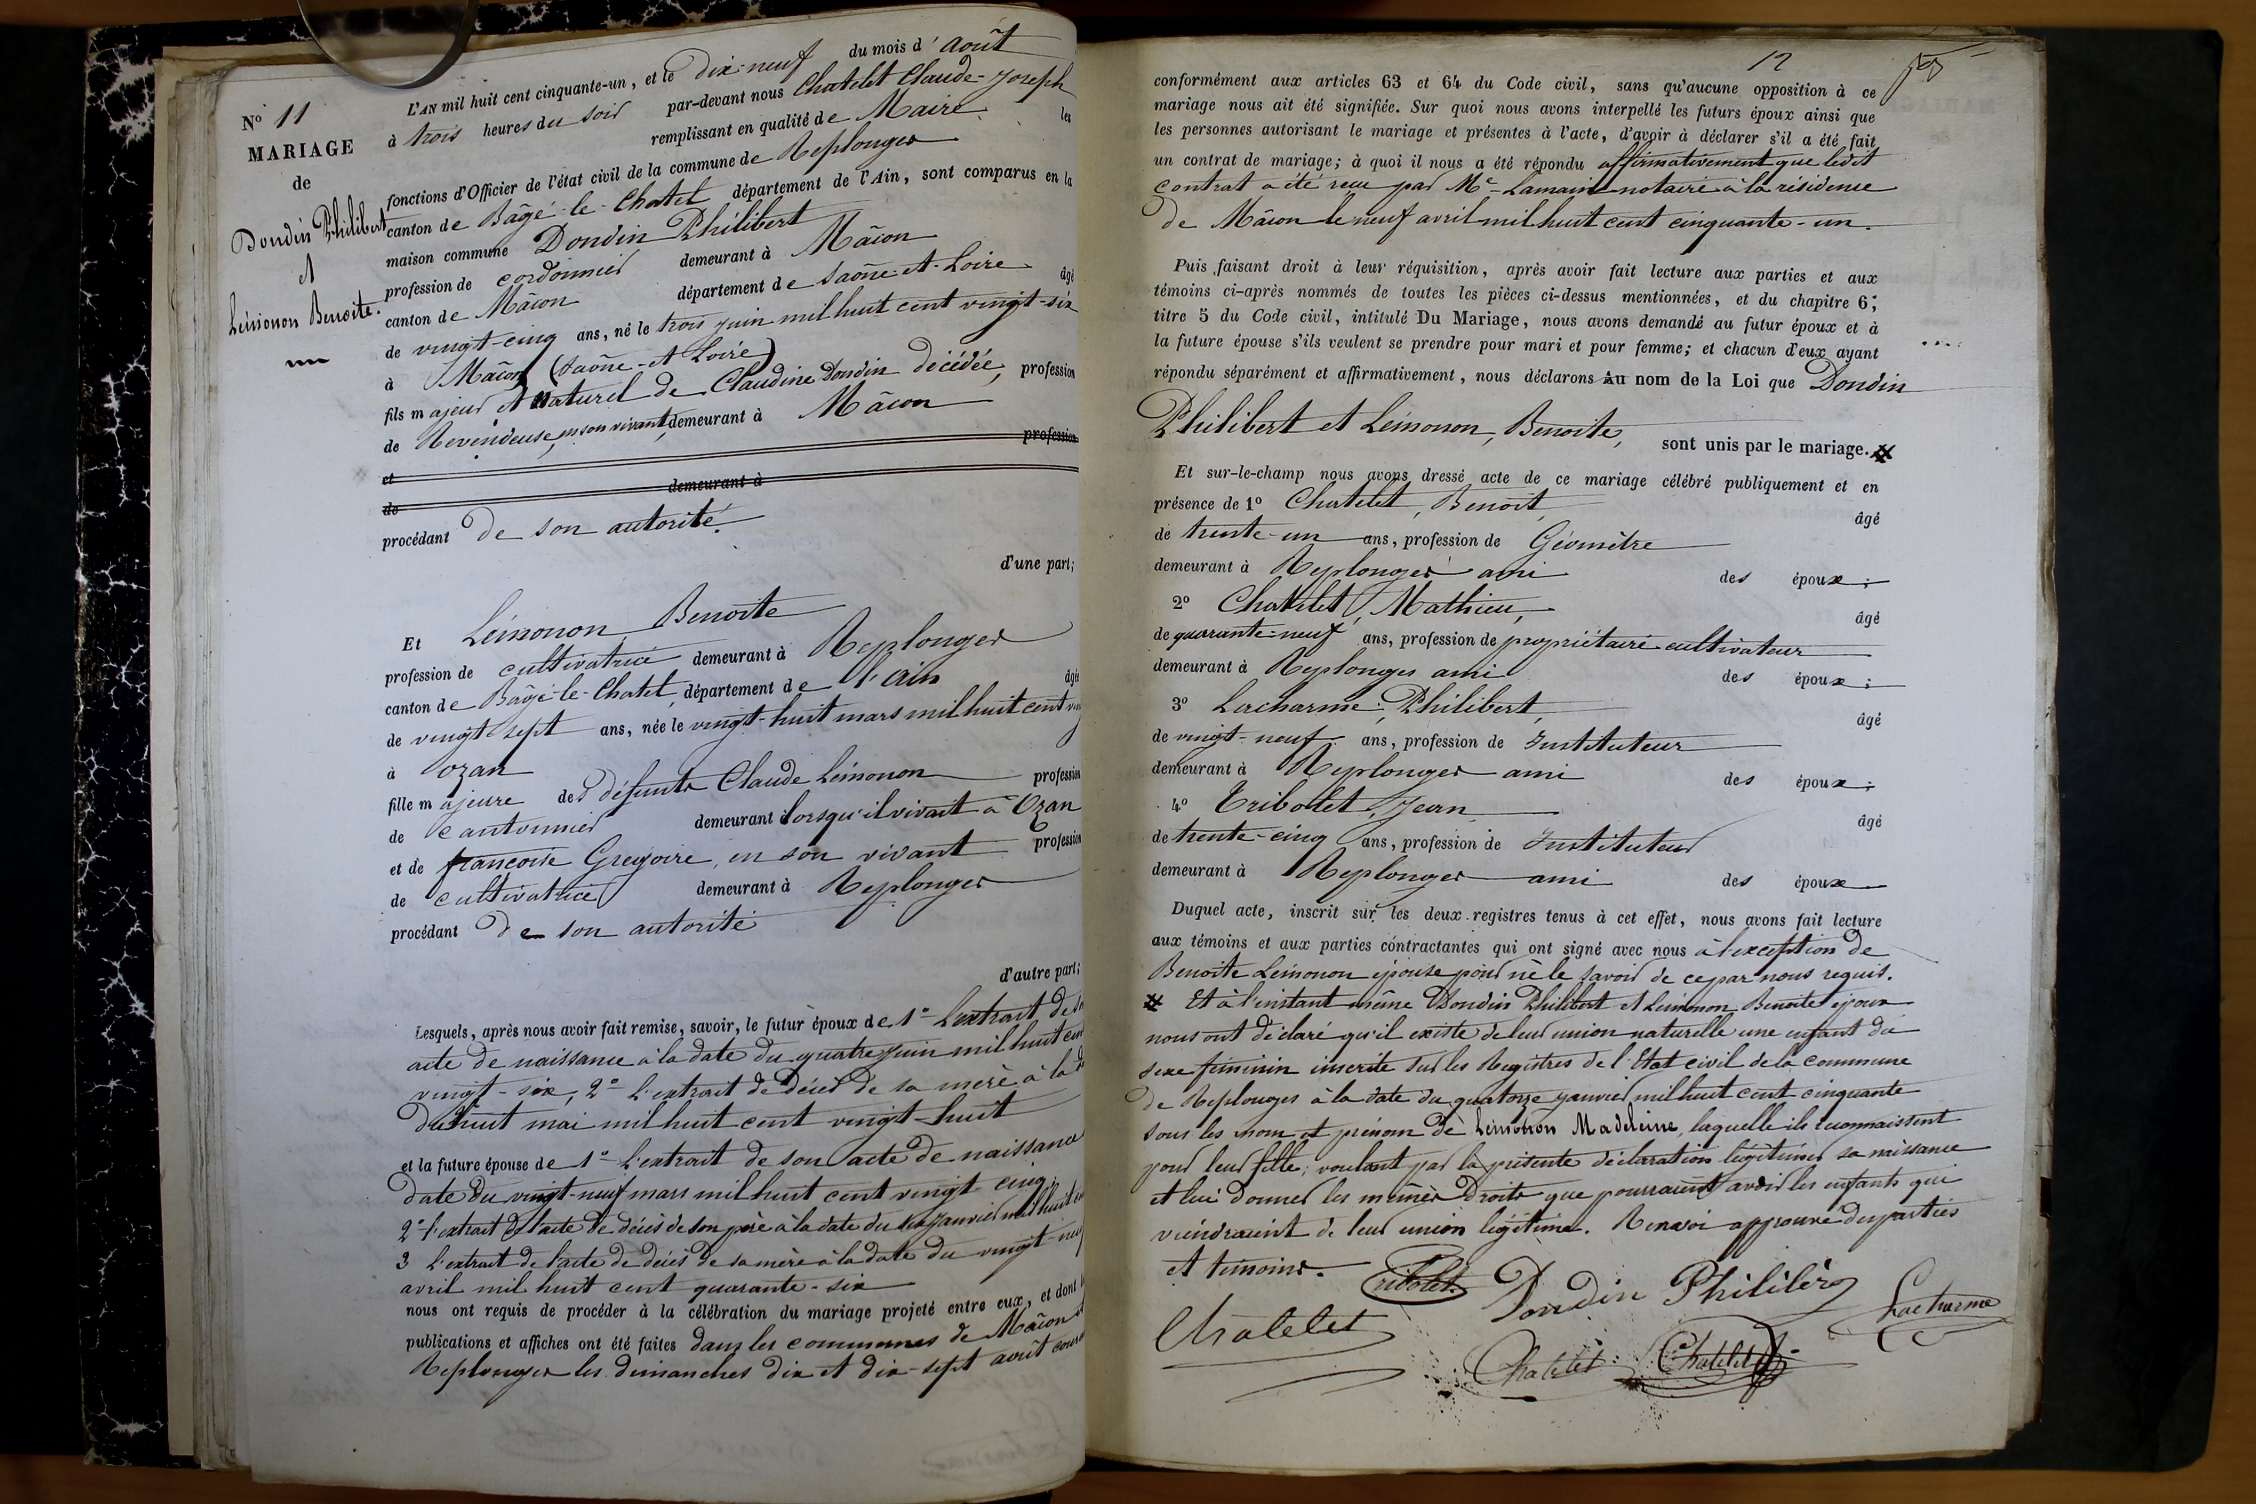 N° 11
MARIAGE
de
Dondin Philibert
et
Lémonon Benoite.
L'AN mil huit cent cinquante-un, et le dix-neuf du mois d'Août
à trois heures du soir par-devant nous Chatelet Claude-Joseph
remplissant en qualité de Maire les
fonctions d'Officier de l'état civil de la commune de Replonges
canton de Bâgé-le-Chatel département de l'Ain, sont comparus en la
maison commune Dondin Philibert
profession de cordonnier demeurant à Mâcon
canton de Mâcon département de Saône-et-Loire âgé
de vingt-cinq ans, né le trois juin mil huit cent vingt-six
à Mâcon (Saône-et-Loire)
fils majeur et naturel de Claudine Dondin décédée, profession
de Revendeuse, en son vivant, demeurant à Mâcon
et profession
de demeurant à
procédant de son autorité.
d'une part;
Et Lémonon Benoite
profession de cultivatrice demeurant à Replonges
canton de Bâgé-le-Chatel, département de l'Ain âgée
de vingt-sept ans, née le vingt-huit mars mil huit cent
à Ozan
fille majeure des défunts Claude Lémonon profession
de cantonnier demeurant lorsqu'il vivait à Ozan
et de françoise Gregoire, en son vivant profession
de cultivatrice demeurant à Replonges
procédant de son autorité
d'autre part;
Lesquels, après nous avoir fait remise, savoir, le futur époux de 1° L'extrait de
acte de naissance à la date du quatre juin mil huit cent
vingt-six, 2° L'extrait de décès de sa mère à la
du huit mai mil huit cent vingt-huit
et la future épouse de 1° L'extrait de son acte de naissance
date du vingt-neuf mars mil huit cent vingt cinq,
2° l'extrait de l'acte de décès de son père à la date du janvier mil huit
3 L'extrait de l'acte de décès de sa mère à la date du vingt-neuf
avril mil huit cent quarante-six
nous ont requis de procéder à la célébration du mariage projeté entre eux, et dont
publications et affiches ont été faites dans les communes de Mâcon et
Replonges les dimanches dix et dix-sept août
12
conformément aux articles 63 et 64 du Code civil, sans qu'aucune opposition à ce
mariage nous ait été signifiée. Sur quoi nous avons interpellé les futurs époux ainsi que
les personnes autorisant le mariage et présentes à l'acte, d'avoir à déclarer s'il a été fait
un contrat de mariage; à quoi il nous a été répondu affirmativement que ledit
contrat a été recu par Me Lamain notaire à la résidence
de Mâcon le neuf avril mil huit cent cinquante-un.
Puis faisant droit à leur réquisition, après avoir fait lecture aux parties et aux
témoins ci-après nommés de toutes les pièces ci-dessus mentionnées, et du chapitre 6,
titre 5 du Code civil, intitulé Du Mariage, nous avons demandé au futur époux et à
la future épouse s'ils veulent se prendre pour mari et pour femme; et chacun d'eux ayant
répondu séparément et affirmativement, nous déclarons Au nom de la Loi que Dondin
Philibert et Lémonon, Benoite, sont unis par le mariage.
Et sur-le-champ nous avons dressé acte de ce mariage célébré publiquement et en
présence de 1° Chatelet, Benoit, âgé
de trente-un ans, profession de Géomètre
demeurant à Replonges ami des époux;
2° Chatelet, Mathieu, âgé
de quarante-neuf ans, profession de propriétaire cultivateur
demeurant à Replonges ami des époux;
3° Lacharme, Philibert, âgé
de vingt-neuf ans, profession de Instituteur
demeurant à Replonges ami des époux;
4° Tribolet, Jean âgé
de trente-cinq ans, profession de Instituteur
demeurant à Replonges ami des époux
Duquel acte, inscrit sur les deux registres tenus à cet effet, nous avons fait lecture
aux témoins et aux parties contractantes qui ont signé avec nous à l'exception de
Benoite Lémonon épouse pour ne le savoir de ce par nous requis.
Et à l'instant même Dondin Philibert et Lémonon Benoite époux
nous ont déclaré qu'il existe de leur union naturelle une enfant du
sexe féminin inscrite sur les Registres de l'Etat civil de la commune
de Replonges à la date du quatorze janvier mil huit cent cinquante
sous les nom et prénom de Lémonon Madeleine, laquelle ils reconnaissent
pour leur fille, voulant par la présente déclaration légitimer sa naissance
et lui donner les mêmes droits que pourraient avoir les enfants qui
viendraient de leur union légitime. Renvoi approuvé des parties
et témoins.
Tribolet
Dondin Philiber
Lacharme
Chatelet
Chatelet
Chatelet